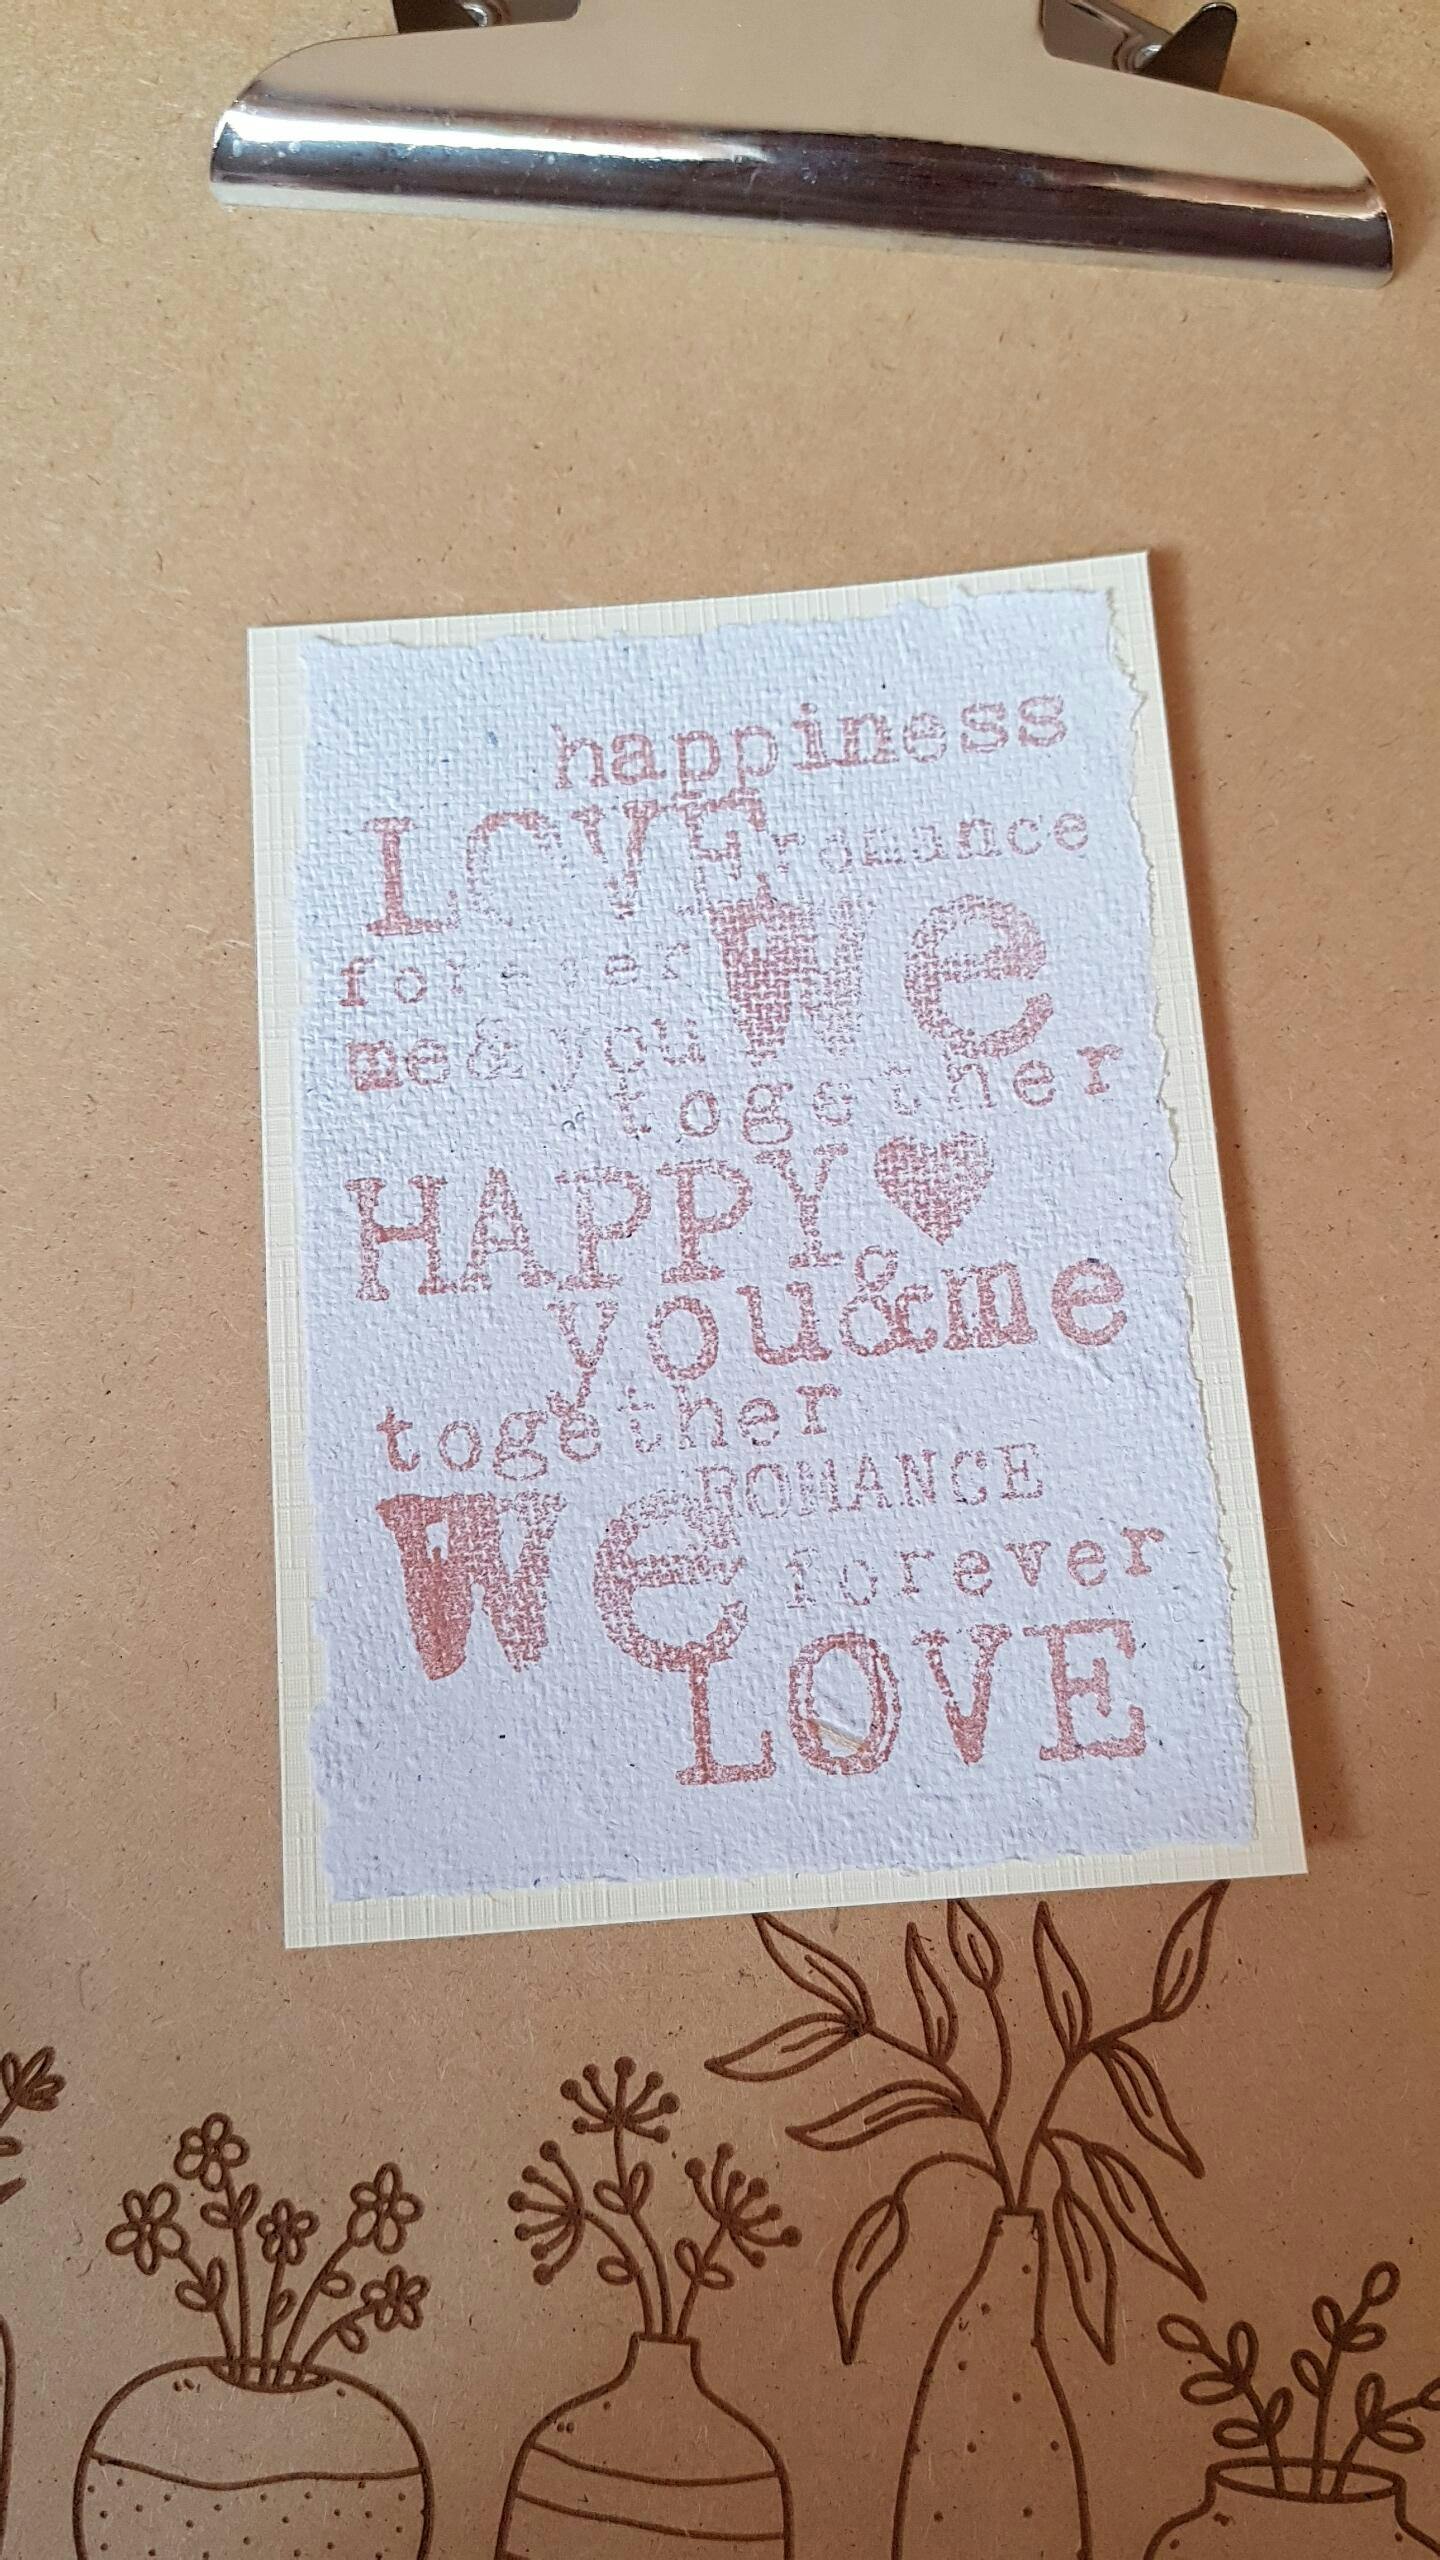 happiness
LOVE romance
forever We
me&you
together
HAPPY
you&me
together
ROMANCE
We forever
LOVE